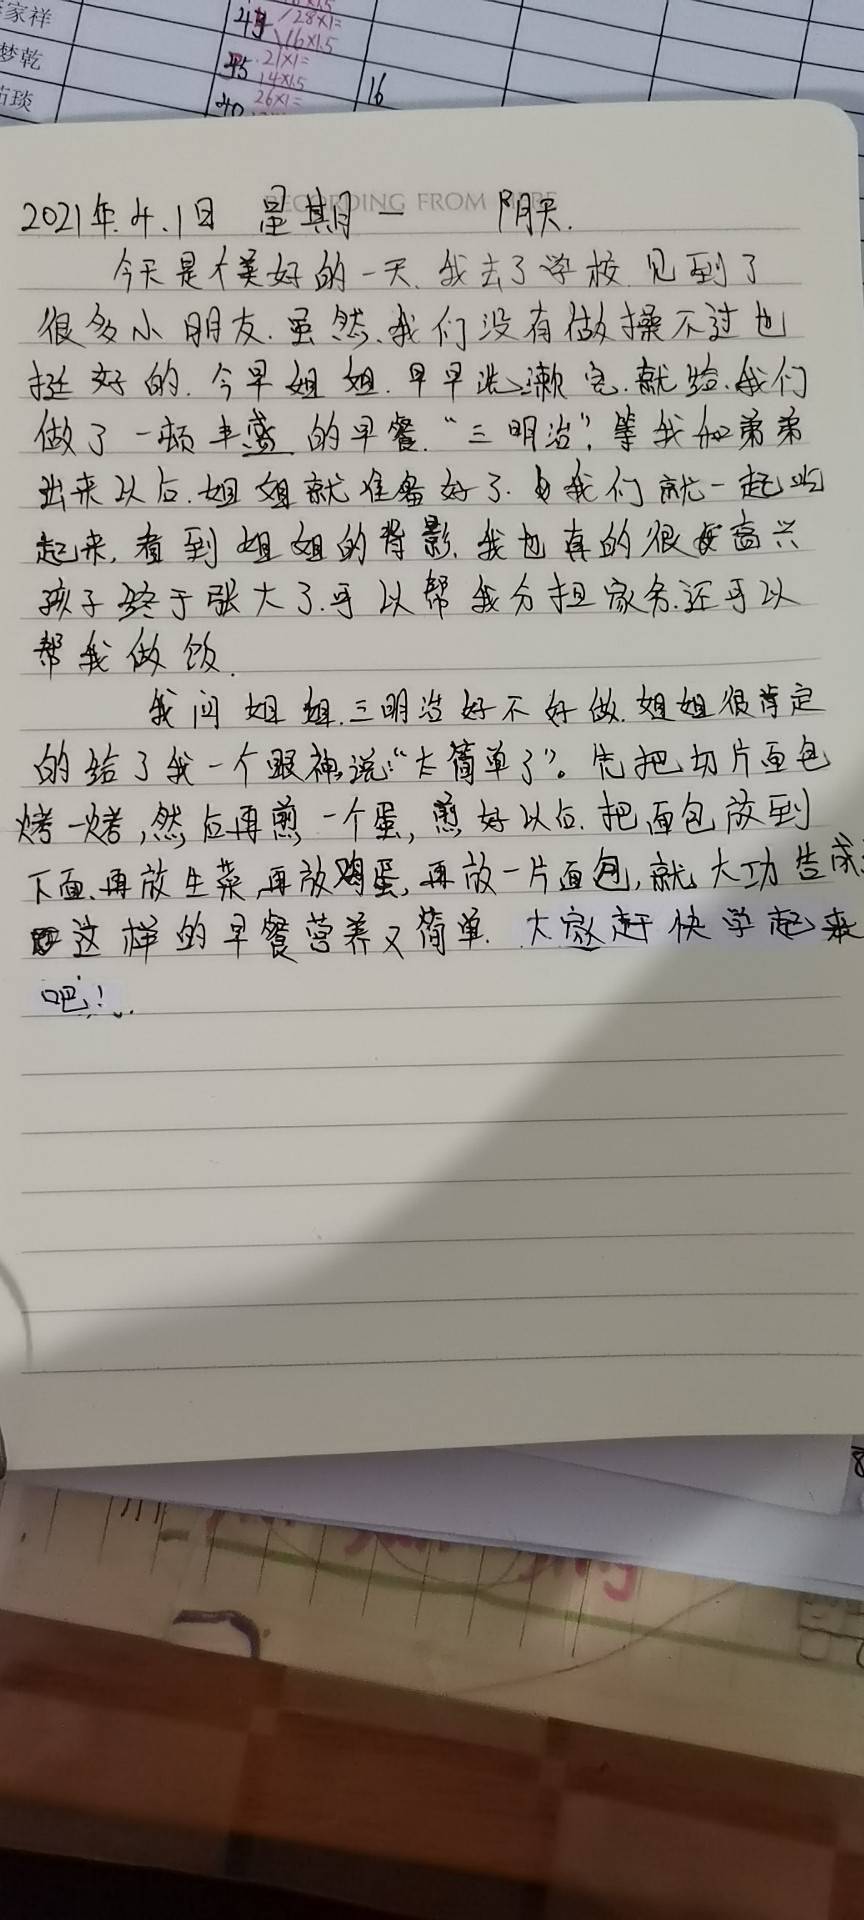 家祥
28×1=
16×1.5
梦乾
45
21×1=
14×1.5
琰
40
26×1=
16
RECORDING FROM HERE
2021年.4.1日 星期一 阴天.
今天是个美好的一天.我去了学校.见到了
很多小朋友.虽然.我们没有做操不过也
挺好的.今早姐姐.早早洗漱完.就给.我们
做了一顿丰盛的早餐.“三明治”,等我和弟弟
出来以后.姐姐就准备好了.我们就一起吃
起来,看到姐姐的背影.我也真的很高兴
孩子终于张大了.可以帮我分担家务.还可以
帮我做饭.
我问姐姐.三明治好不好做.姐姐很肯定
的给了我一个眼神说:“太简单了”。先把切片面包
烤一烤,然后再煎一个蛋,煎好以后.把面包放到
下面.再放生菜,再放鸡蛋,再放一片面包,就大功告成
这样的早餐营养又简单.大家赶快学起来
吧!